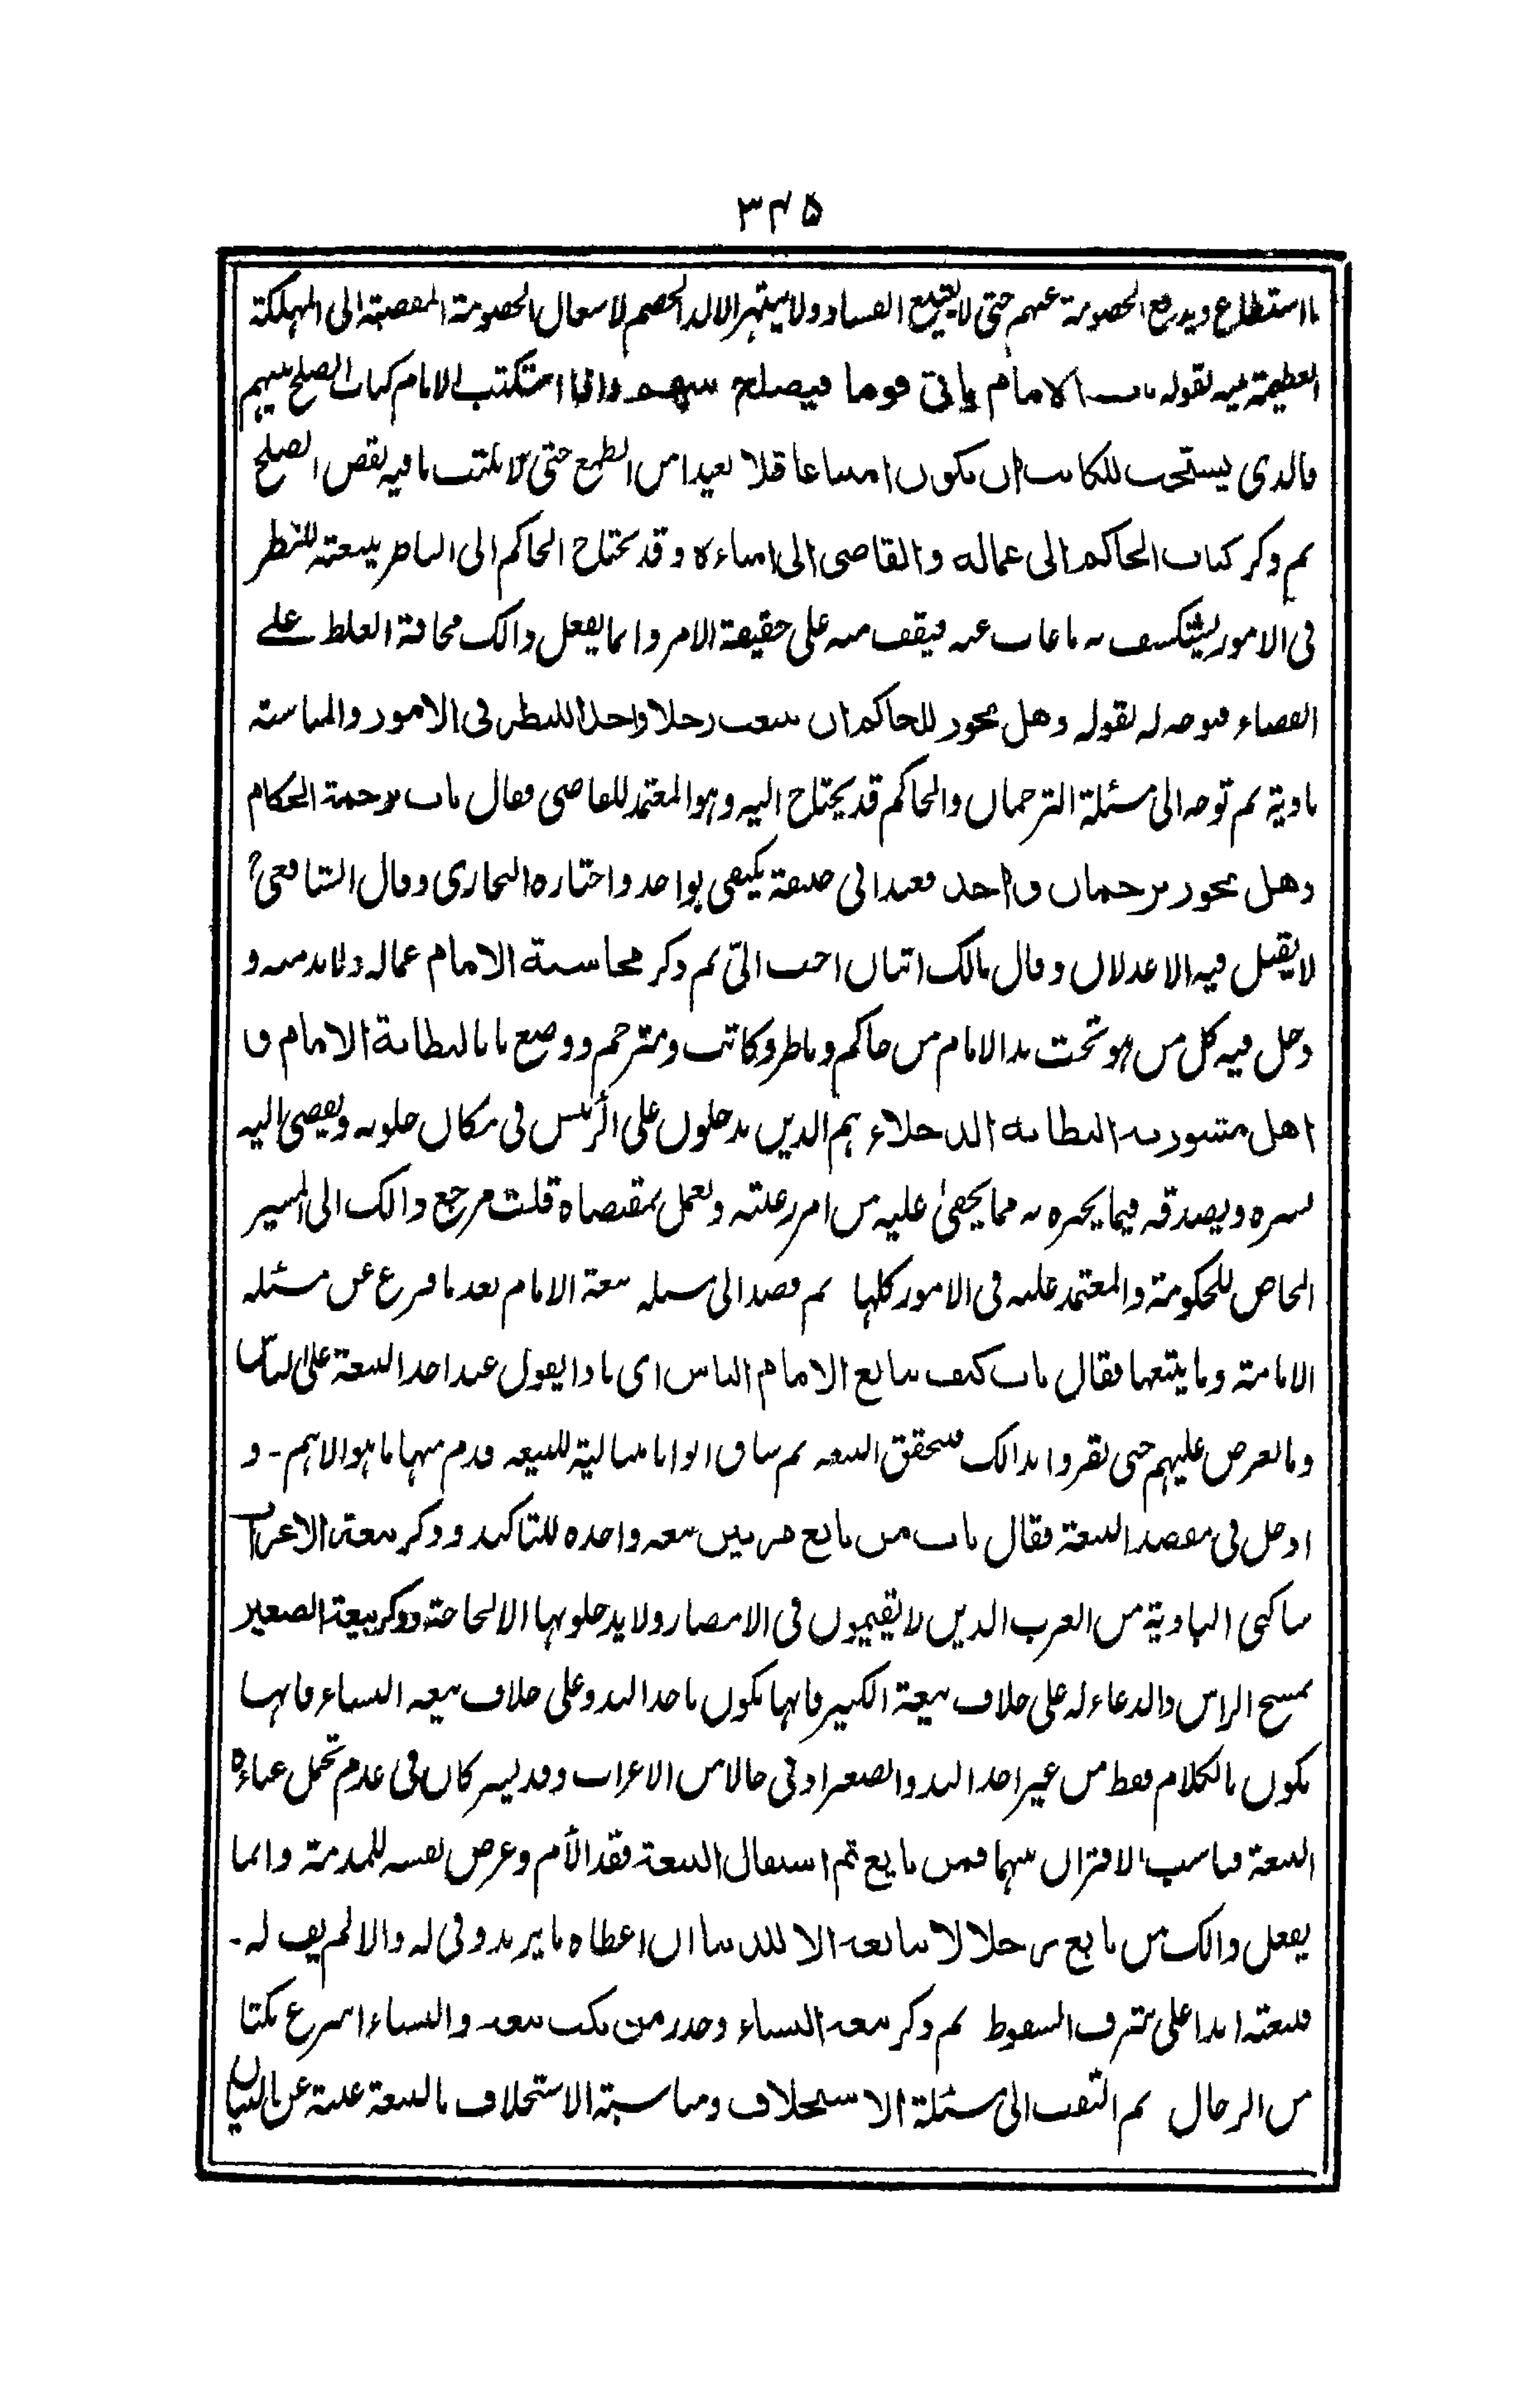 ٣٤٥
ما استطاع ويدفع الخصومة عنهم حتى لا يشيع الفساد ولا يشتهر الالد الخصم لاستعمال الخصومة المفضية الى المهلكة
العظيمة فيه لقوله باب الامام ياتى قوما فيصلح بينهم واذا استكتب الامام كتاب الصلح بينهم
فالذى يستحب للكاتب ان يكون امينا عاقلا بعيدا من الطمع حتى لا يكتب ما فيه نقص الصلح
ثم ذكر كتاب الحاكم الى عماله والقاضى الى امناءه وقد يحتاج الحاكم الى الناظر يبعثه للنظر
فى الامور ليتكشف به ما غاب عنه فيقف منه على حقيقة الامر وانما يفعل ذالك مخافة الغلط على
القضاء فبوب له لقوله وهل يجوز للحاكم ان يبعث رجلا واحدا للنظر فى الامور والمناسبة
بادية ثم توجه الى مسئلة الترجمان والحاكم قد يحتاج اليه وهو المعتمد للقاضى فقال باب ترجمة الحكام
وهل يجوز ترجمان واحد فعند ابى حنيفة يكتفى بواحد واختاره البخارى وقال الشافعى؟
لا يقبل فيه الا عدلان وقال مالك اثنان احب الىّ ثم ذكر محاسبة الامام عماله ولا بد منه و
دخل فيه كل من هو تحت يد الامام من حاكم وناظر وكاتب ومترجم ووضع بابا لبطانة الامام و
اهل مشورته البطانة الدخلاء هم الذين يدخلون على الرئيس فى مكان خلوته ويفضى اليه
بسره ويصدقه فيما يخبره به مما يخفىٰ عليه من امر رعيته ويعمل بمقتضاه قلت مرجع ذالك الى المشير
الخاص للحكومة والمعتمد عليه فى الامور كلها ثم قصد الى مسئلة بيعة الامام بعد ما فرغ عن مسئلة
الامامة وما يتبعها فقال باب كيف يبايع الامام الناس اى ماذا يقول عند اخذ البيعة على الناس
وما يعرض عليهم حتى يقروا بذالك فيتحقق البيعة ثم ساق ابوابا مثالية للبيعة قدم منها ما هو الاهم - و
ادخل فى مقصد البيعة فقال باب من بايع مرتين بيعة واحدة للتاكيد وذكر بيعة الاعراب
ساكنى البادية من العرب الذين لا يقيمون فى الامصار ولا يدخلونها الا لحاجة وذكر بيعة الصغير
بمسح الراس والدعاء له على خلاف بيعة الكبير فانها تكون باخذ اليد وعلى خلاف بيعة النساء فانها
تكون بالكلام فقط من غير اخذ اليد والصغير ادنى حالا من الاعراب وقد يشركان فى عدم تحمل عباءة
البيعة فناسب الاقتران بينهما فمن بايع ثم استقال البيعة فقد اثم وعرض نفسه للمذمة وانما
يفعل ذالك من بايع رجلا لا يبايعه الا للدنيا ان اعطاه ما يريد وفى له والا لم يف له -
فبيعته ابدا على شرف السقوط ثم ذكر بيعة النساء وحذر من نكث بيعة والنساء اسرع نكثا
من الرجال ثم التفت الى مسئلة الاستخلاف ومناسبة الاستخلاف بالبيعة غنية عن البيان